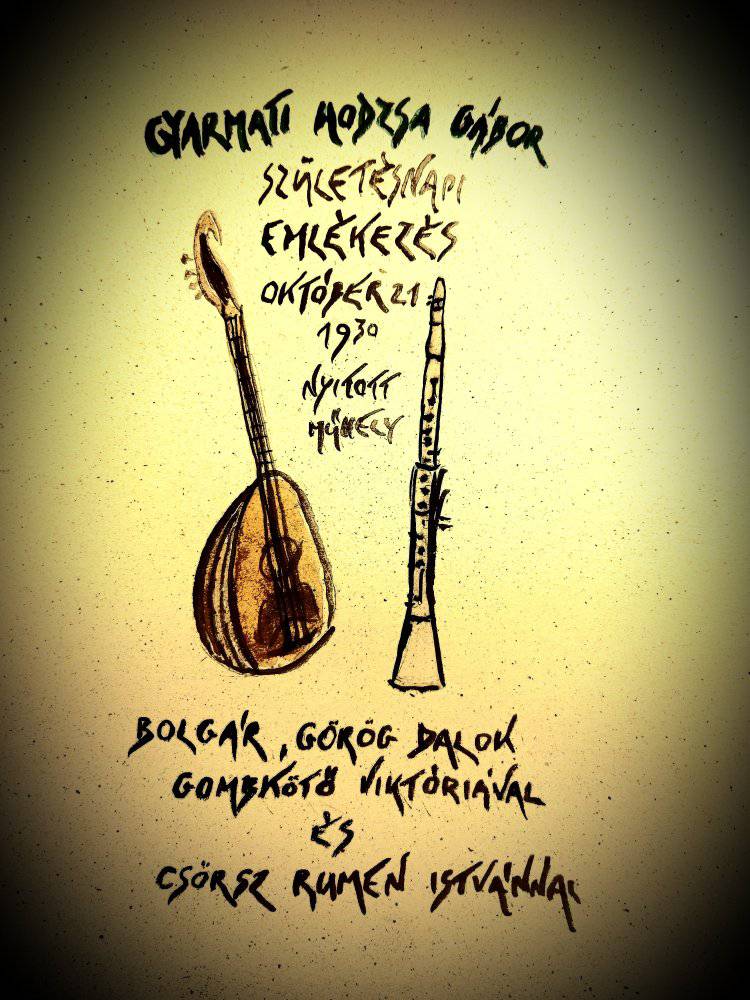 GYARMATI HODZSA GÁBOR
SZÜLETÉSNAPI
EMLÉKEZÉS
OKTÓBER 21
1930
NYITOTT
MŰHELY
BOLGÁR, GÖRÖG DALOK
GOMBKÖTŐ VIKTÓRIÁVAL
ÉS
CSÖRSZ RUMEN ISTVÁNNAL